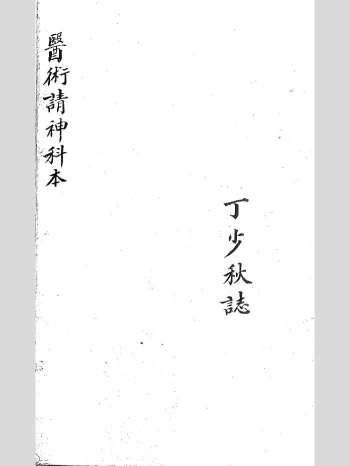 醫術請神科本
丁少秋誌